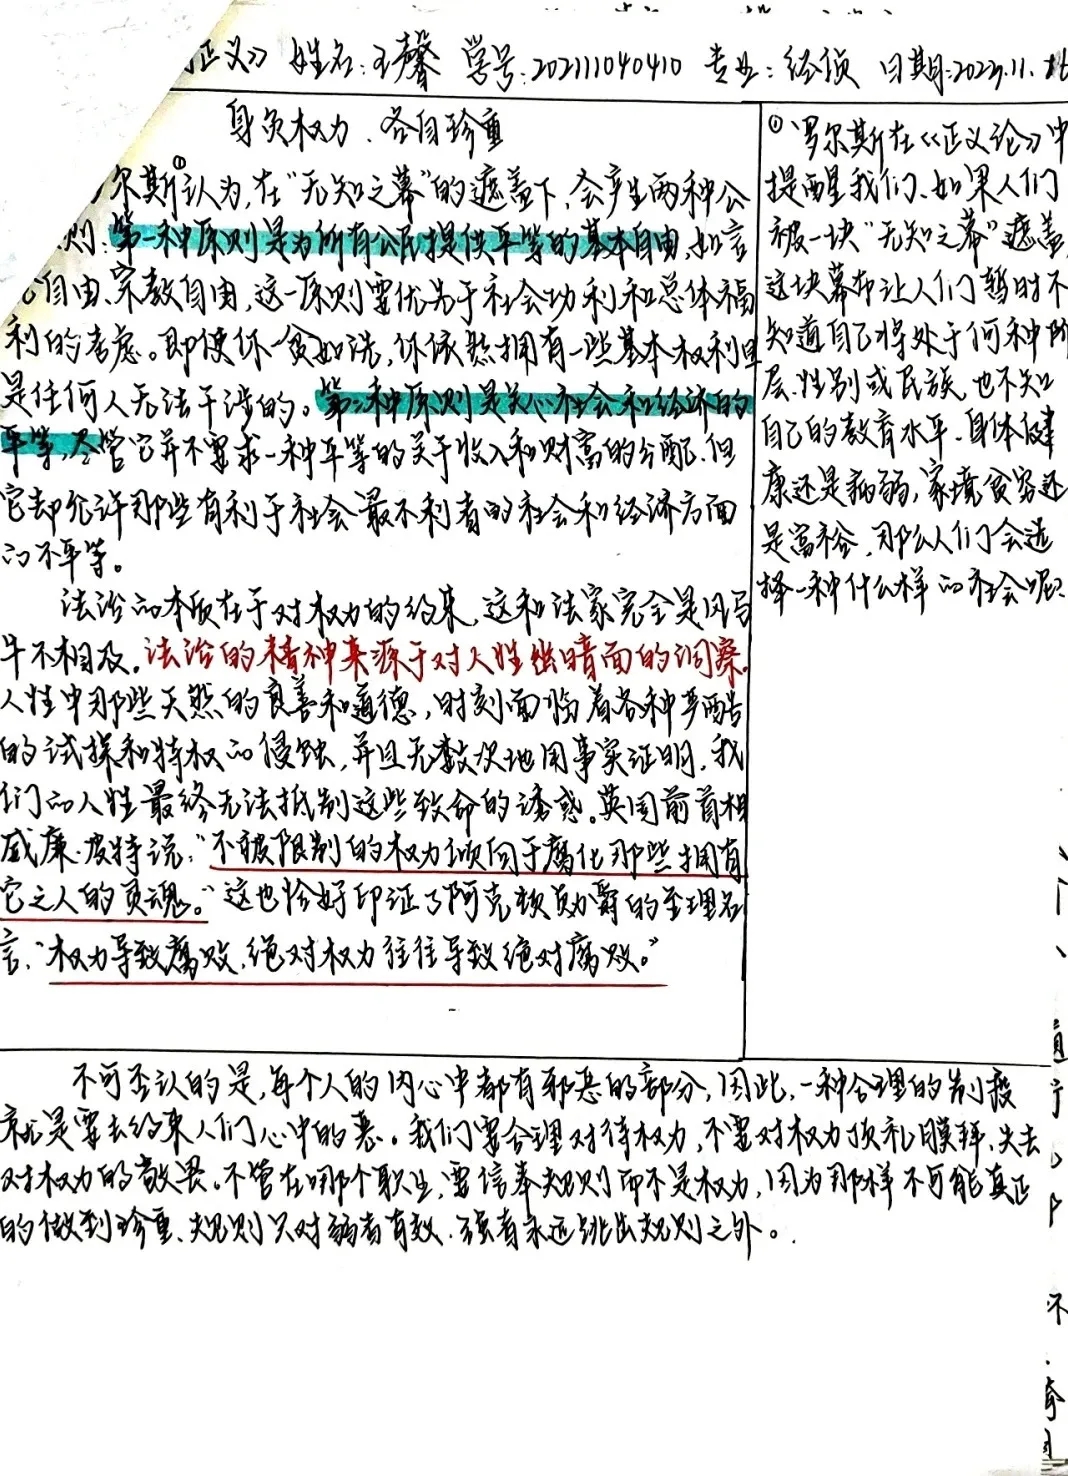 正义》 姓名:王馨 学号:202111040410 专业:经侦 日期:2023.11.
身负权力、各自珍重
尔斯①认为,在“无知之幕”的遮盖下,会产生两种公
则:第一种原则是为所有公民提供平等的基本自由,如言
自由、宗教自由,这一原则要优先于社会功利和总体福
利的考虑。即使你一贫如洗,你依然拥有一些基本权利
是任何人无法干涉的。第二种原则是关心社会和经济的
平等,尽管它并不要求一种平等的关于收入和财富的分配,但
它却允许那些有利于社会最不利者的社会和经济方面
的不平等。
法治的本质在于对权力的约束,这和法家完全是风马
牛不相及。法治的精神来源于对人性幽暗面的洞察。
人性中那些天然的良善和道德,时刻面临着各种严酷
的试探和特权的侵蚀,并且无数次地用事实证明,我
们的人性最终无法抵制这些致命的诱惑。英国前首相
威廉·皮特说:“不被限制的权力倾向于腐化那些拥有
它之人的灵魂。”这也恰好印证了阿克顿勋爵的至理名
言,“权力导致腐败,绝对权力往往导致绝对腐败。”
①罗尔斯在《正义论》中
提醒我们、如果人们
被一块“无知之幕”遮盖,
这块幕布让人们暂时不
知道自己将处于何种阶
层、性别或民族,也不知
自己的教育水平、身体健
康还是病弱,家境贫穷还
是富裕,那么人们会选
择一种什么样的社会呢?
不可否认的是,每个人的内心中都有邪恶的部分,因此,一种合理的制度
就是要去约束人们心中的恶。我们要合理对待权力,不要对权力顶礼膜拜,失去
对权力的敬畏。不管在哪个职业,要信奉规则而不是权力,因为那样不可能真正
的做到珍重、规则只对弱者有效,强者永远跳出规则之外。